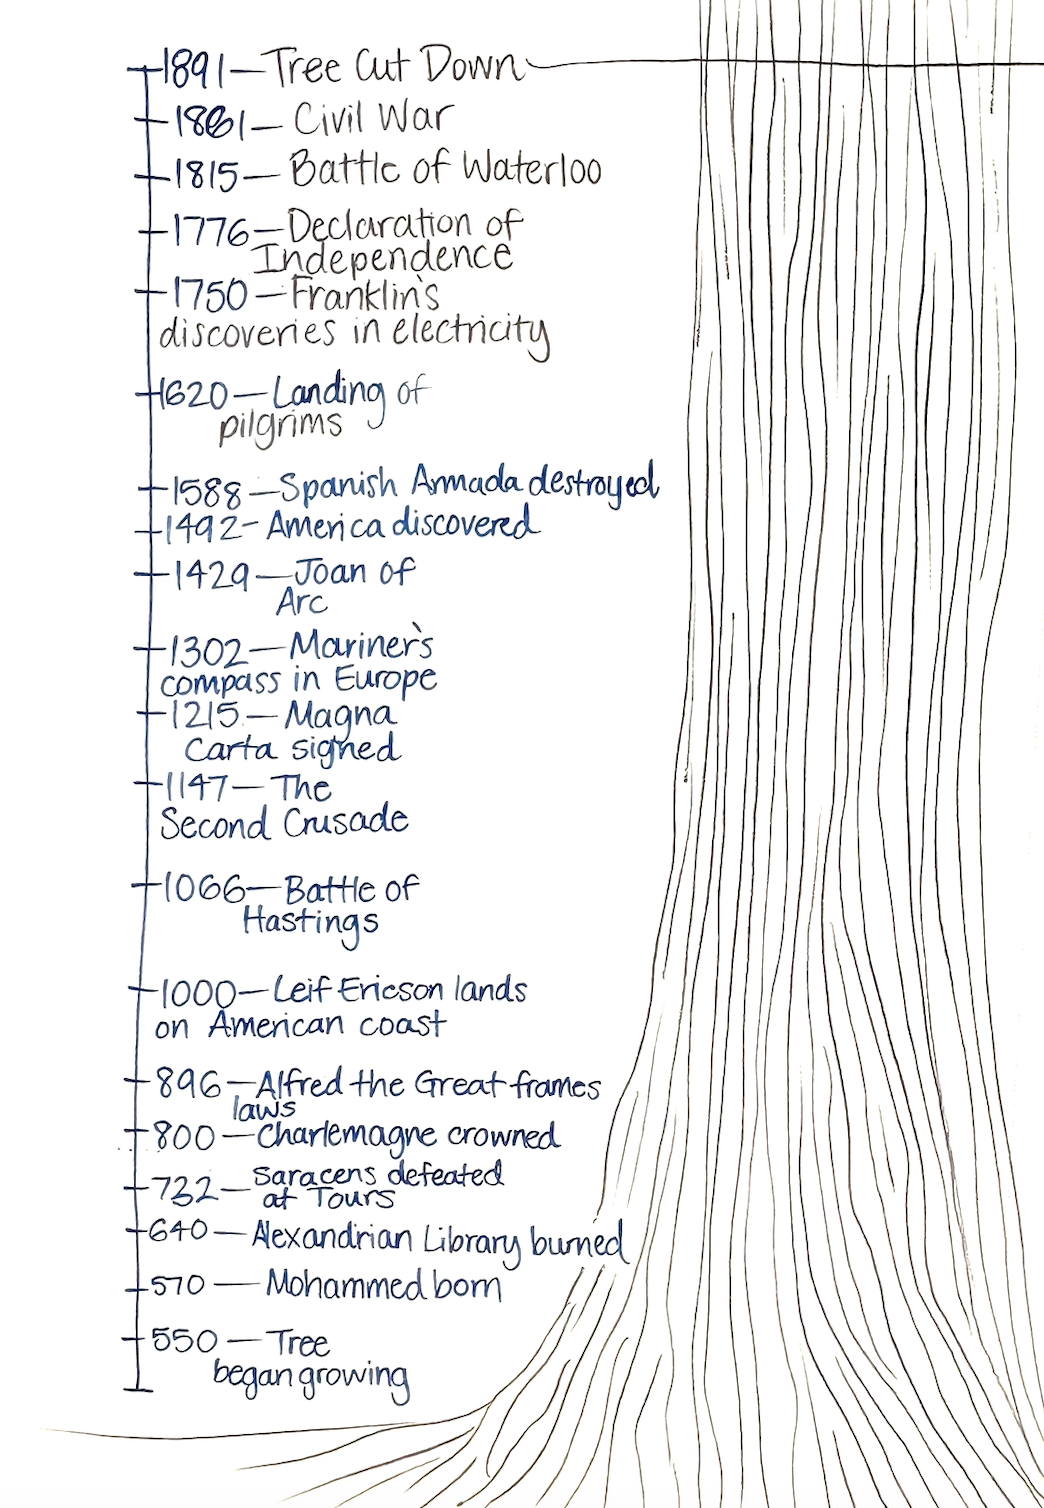 1891—Tree Cut Down
1861—Civil War
1815—Battle of Waterloo
1776—Declaration of
Independence
1750—Franklin's
discoveries in electricity
1620—Landing of
pilgrims
1588—Spanish Armada destroyed
1492-America discovered
1429—Joan of
Arc
1302—Mariner's
compass in Europe
1215—Magna
Carta signed
1147—The
Second Crusade
1066—Battle of
Hastings
1000—Leif Ericson lands
on American coast
896—Alfred the Great frames
laws
800—Charlemagne crowned
732—Saracens defeated
at Tours
640—Alexandrian Library burned
570—Mohammed born
550—Tree
began growing